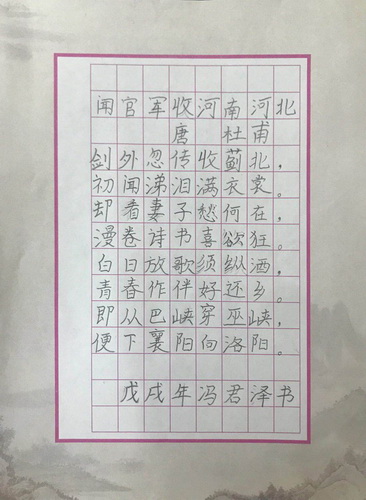 闻官军收河南河北
唐 杜甫
剑外忽传收蓟北，
初闻涕泪满衣裳。
却看妻子愁何在，
漫卷诗书喜欲狂。
白日放歌须纵酒，
青春作伴好还乡。
即从巴峡穿巫峡，
便下襄阳向洛阳。
戊戌年冯君泽书